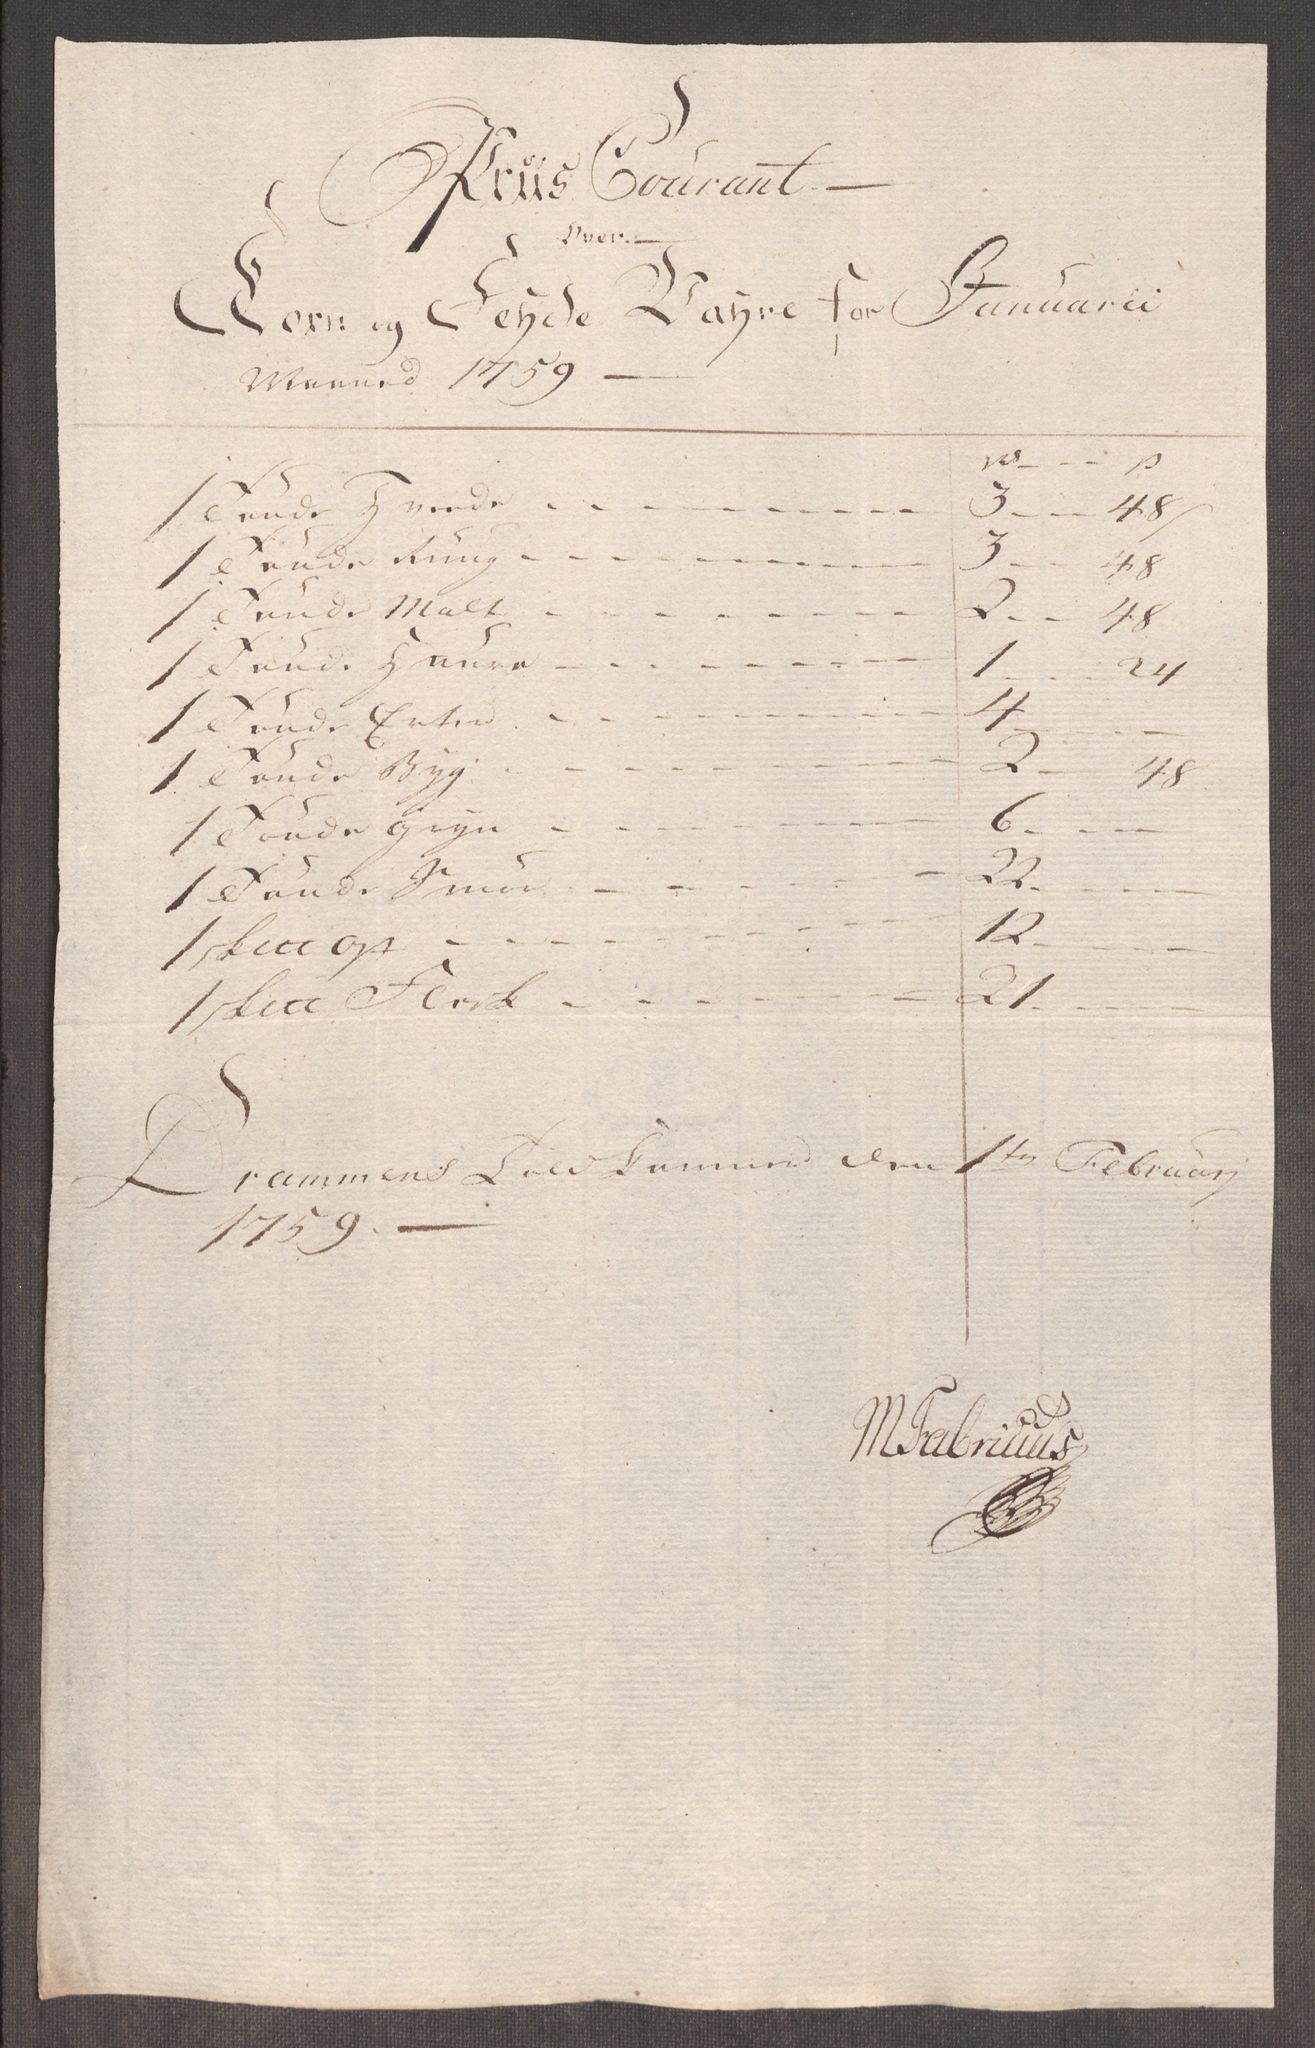 Priis Courant
Over
Korn og Fehde Vahre for Januarii
Maaned 1759
rd ß
1 Tønde Hvede 3 48
1 Tønde Rug 3 48
1 Tønde Malt 2 48
1 Tønde Haure 1 24
1 Tønde Erter 4
1 Tønde Byg 2 48
1 Tønde gryn 6
1 Tønde Smør 22
1 12
1 Flesk 21
Drammens Told Kammer den 1ten Februarj
1759.
MFabricius